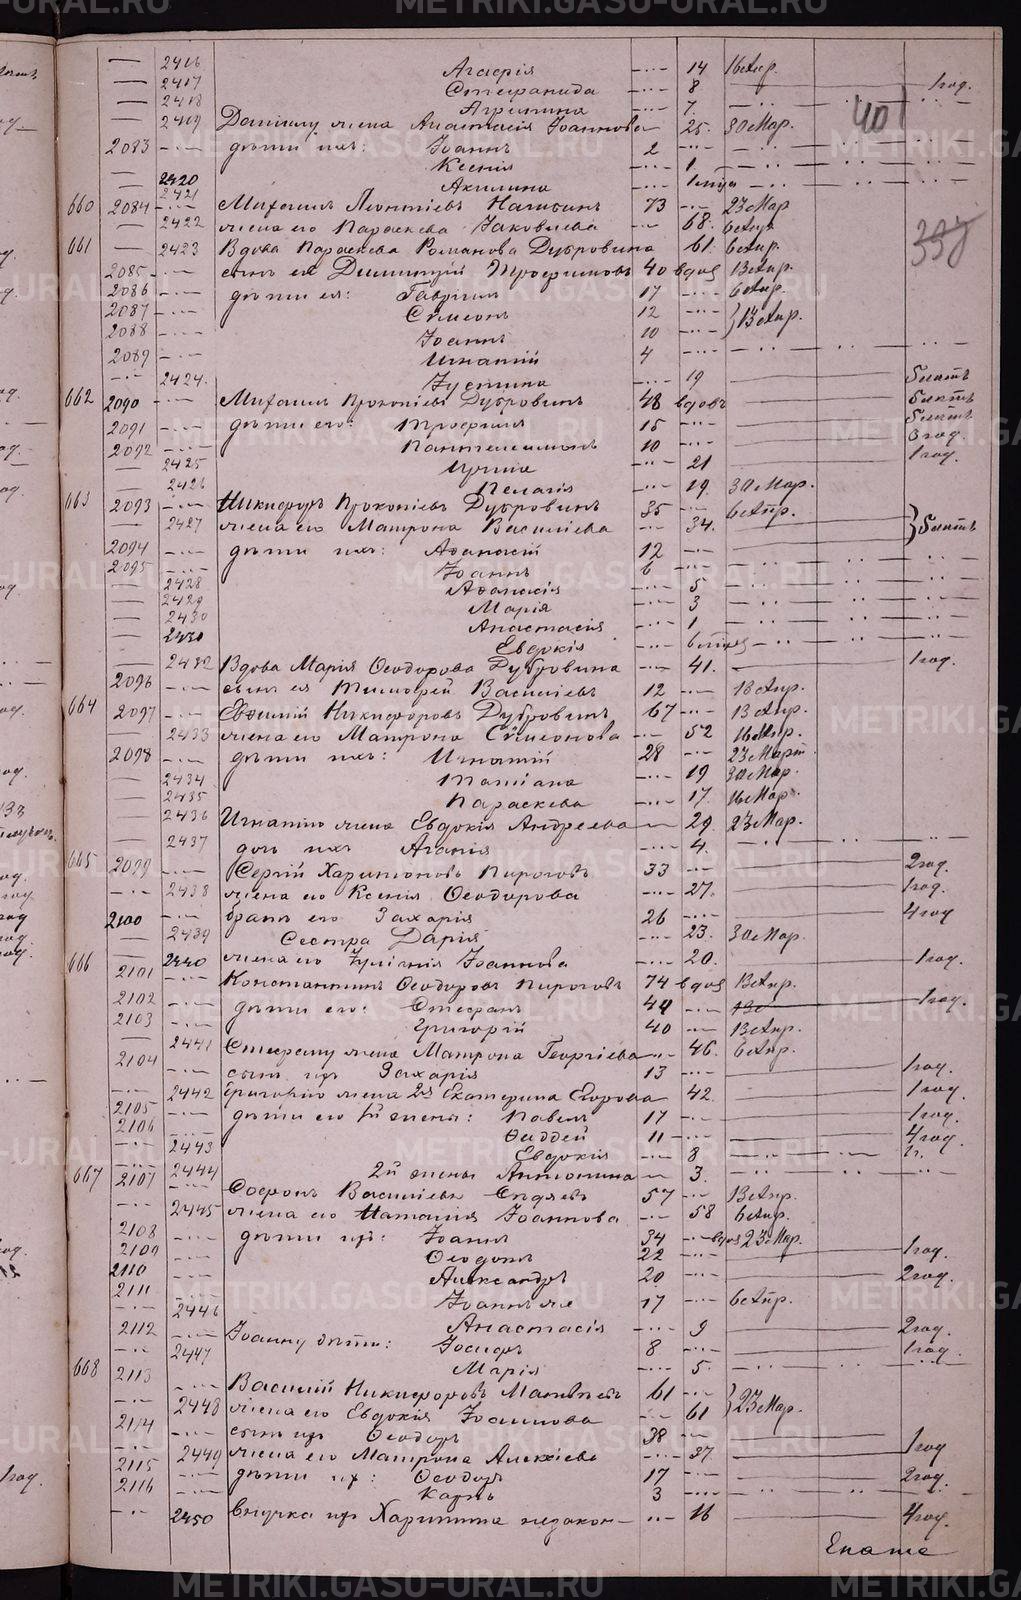 2416 Агафія 14 16 Апр.
2417 Стефанида 8 1 год.
2418 Агрипина 7
2419 Даніилу жена Анастасія Іоаннова 25. 30 Мар.
2083 дѣти ихъ: Іоаннъ 2
Ксенія 1
2420 Акилина
660 2084 2421 Михаилъ Леонтіевъ 73 23 Мар
2422 жена его Параскева Іаковлева 68. 6 Апр
661 2423 Вдова Параскева Романова Дубровина 61. 6 Апр.
2085 сынъ ея Димитрій Трофимовъ 40 вдов 13 Апр.
2086 дѣти ея: Гавріилъ 17 6 Апр.
2087 Сѵмеонъ 12 13 Апр.
2088 Іоаннъ 10
2089 Игнатій 4
2424. Іустина 19 5 лѣтъ
662 2090 Михаилъ Прокопіевъ Дубровинъ 48 вдовъ 5 лѣтъ
2091 дѣти его: Трофимъ 15 5 лѣтъ
2092 Пантелеимонъ 10 3 год.
2425 21 1 год.
2426 Пелагія 19. 30 Мар.
663 2093 Никифоръ Прокопіевъ Дубровинъ 35 6 Апр.
2427 жена его Матрона Василіева 34. 5 лѣтъ
2094 дѣти ихъ: Аѳанасій 12
2095 Іоаннъ 6
2428 Аѳанасія 5
2429 Марія 3
2430 Анастасія 1
Евдокія
2432 Вдова Марія Ѳеодорова Дубровина 41. 1 год.
2096 сынъ ея Тимоѳей Василіевъ 12 13 Апр.
664 2097 Евѳимій Никифоровъ Дубровинъ 67 13 Апр.
2433 жена его Матрона Сѵмеонова 52 16 Апр.
2098 дѣти ихъ: Игнатій 28 23 Март
2434 Татіана 19 30 Мар.
2435 Параскева 17. 16 Мар.
2436 Игнатію жена Евдокія Андреева 29. 23 Мар.
2437 дочь ихъ Агапія 4.
665 2099 Сергій Харитоновъ Пироговъ 33 2 год.
2438 жена его Ксенія Ѳеодорова 27. 1 год.
2100 братъ его Захарія 26 4 год
2439 Сестра Дарія 23. 30 Мар.
2440 жена его Іуліанія Іоаннова 20. 1 год.
666 2101 Константинъ Ѳеодоровъ Пироговъ 74 вдов 13 Апр.
2102 дѣти его: Стефанъ 44 1 год.
2103 Григорій 40 13 Апр.
2441 Стефану жена Матрона Георгіева 46. 6 Апр.
2104 сынъ их Захарія 13 1 год.
2442 Григорію жена 2я Екатерина Егорова 42. 1 год.
2105 дѣти его 1й жены: Павелъ 17 1 год.
2106 Ѳаддей 11 4 год.
2443 Евдокія 8
2444 2й жены Антонина 3.
667 2107 Софронъ Василіевъ 57 13 Апр.
2445 жена его Наталія Іоаннова 58 6 Апр.
2108 дѣти их: Іоаннъ 34 вдов 23 Мар.
2109 22 1 год.
2110 Александръ 20 2 год.
2111 Іоаннъ же 17 6 Апр.
2446 Анастасія 9 2 год.
2112 Іоанну дѣти: Іосифъ 8 1 год.
2447 Марія 5.
668 2113 Василій Никифоровъ Матвѣевъ 61 23 Мар.
2448 жена его Евдокія Іоаннова 61
2114 сынъ их Ѳеодоръ 38 1 год
2449 жена его Матрона Алексіева 37.
2115 дѣти их: Ѳеодоръ 17 2 год.
2116 Карпъ 3
2450 внучка их Харитина незакон- 16 4 год.
40